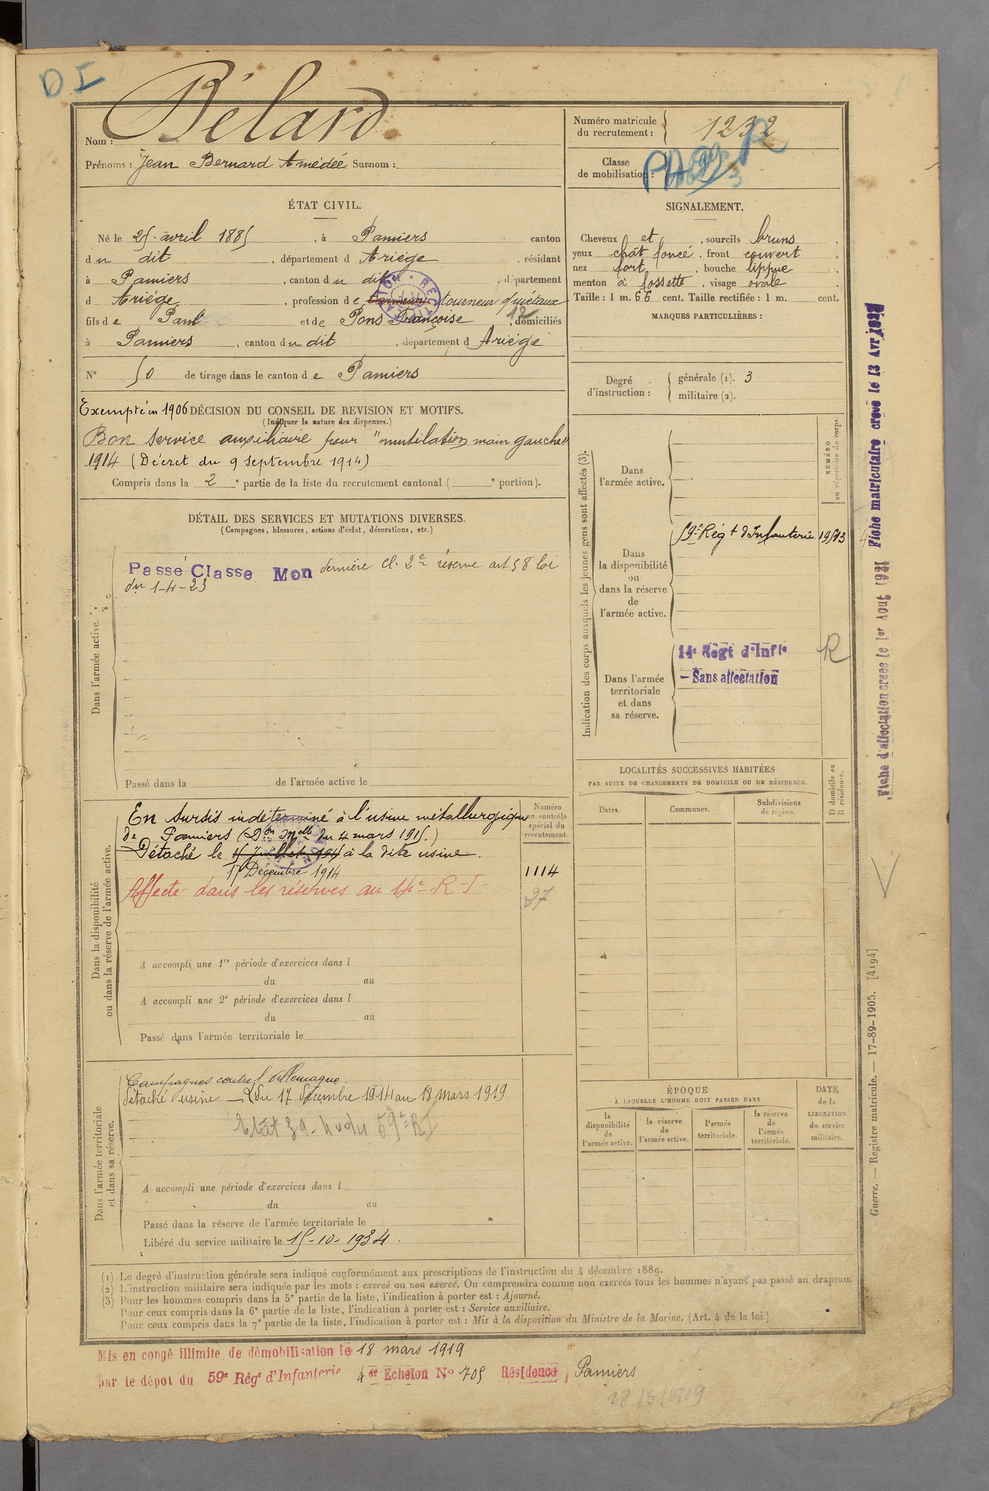 D I
Nom : Bélard
Prénoms : Jean Bernard Amédée Surnom :
Numéro matricule
du recrutement : 1232
Classe
de mobilisation :
ÉTAT CIVIL.
Né le 25 avril 1885, à Pamiers canton
du dit, département d Ariège, résidant
à Pamiers, canton du dit, département
d Ariège, profession de tourneur métaux
fils de Paul et de Pons Françoise, domiciliés
à Pamiers, canton du dit, département d Ariège
N° 50 de tirage dans le canton de Pamiers
SIGNALEMENT.
Cheveux et, sourcils bruns
yeux chât foncé, front couvert
nez fort, bouche lippue
menton à fossette, visage ovale
Taille : 1 m. 66 cent. Taille rectifiée : 1 m. cent.
MARQUES PARTICULIÈRES :
Degré
d'instruction :
générale (1). 3
militaire (2).
Exempté en 1906 DÉCISION DU CONSEIL DE REVISION ET MOTIFS.
(Indiquer la nature des dispenses.)
Bon service auxiliaire pour "mutilation main gauche"
1914 (Décret du 9 septembre 1914)
Compris dans la 2e partie de la liste du recrutement cantonal ( e portion).
DÉTAIL DES SERVICES ET MUTATIONS DIVERSES.
(Campagnes, blessures, actions d'éclat, décorations, etc.)
Dans l'armée active.
Passé Classe Mon dernière Cl. 2e réserve art 58 loi
du 1-4-23
Passé dans la de l'armée active le
Indication des corps auxquels les jeunes gens sont affectés (3).
NUMÉRO
au répertoire du corps.
Dans
l'armée active.
Dans
la disponibilité
ou
dans la réserve
de
l'armée active.
59e Régt d'Infanterie 19573
Dans l'armée
territoriale
et dans
sa réserve.
14e Régt d'Infie
- Sans affectation
R
Fiche matriculaire créée le 13 Avr 1938
Fiche d'affectation créée le 1er Aout 1931
Dans la disponibilité
ou dans la réserve de l'armée active.
Numéro
au contrôle
spécial du
recrutement.
En sursis indéterminé à l'usine métallurgique
de Pamiers (Don Melle du 4 mars 1915.)
Détaché le 15 juillet 1914 à la dite usine.
17 Décembre 1914
1114
97
Affecté dans les réserves au 14e R-I-
A accompli une 1re période d'exercices dans l
du au
A accompli une 2e période d'exercices dans l
du au
Passé dans l'armée territoriale le
LOCALITÉS SUCCESSIVES HABITÉES
PAR SUITE DE CHANGEMENTS DE DOMICILE OU DE RÉSIDENCE.
Dates.
Communes.
Subdivisions
de région.
D domicile ou
R résidence.
Dans l'armée territoriale
et dans sa réserve.
Campagnes contre l'Allemagne.
détaché usine - du 17 décembre 1914 au 18 mars 1919
A accompli une période d'exercices dans l
du au
Passé dans la réserve de l'armée territoriale le
Libéré du service militaire le 15-10-1934.
ÉPOQUE
À LAQUELLE L'HOMME DOIT PASSER DANS
la
disponibilité
de
l'armée active.
la réserve
de
l'armée active.
l'armée
territoriale.
la réserve
de
l'armée
territoriale.
DATE
de la
LIBÉRATION
du service
militaire.
Guerre. — Registre matricule. — 17-89-1905. [4194]
(1) Le degré d'instruction générale sera indiqué conformément aux prescriptions de l'instruction du 4 décembre 1889.
(2) L'instruction militaire sera indiquée par les mots : exercé ou non exercé. On comprendra comme non exercés tous les hommes n'ayant pas passé au drapeau.
(3) Pour les hommes compris dans la 5e partie de la liste, l'indication à porter est : Ajourné.
Pour ceux compris dans la 6e partie de la liste, l'indication à porter est : Service auxiliaire.
Pour ceux compris dans la 7e partie de la liste, l'indication à porter est : Mis à la disposition du Ministre de la Marine. (Art. 4 de la loi.)
Mis en congé illimité de démobilisation le 18 mars 1919
par le dépot du 59e Régt d'Infanterie 4er Echelon N° 705 Résidence, Pamiers
18/3/1919